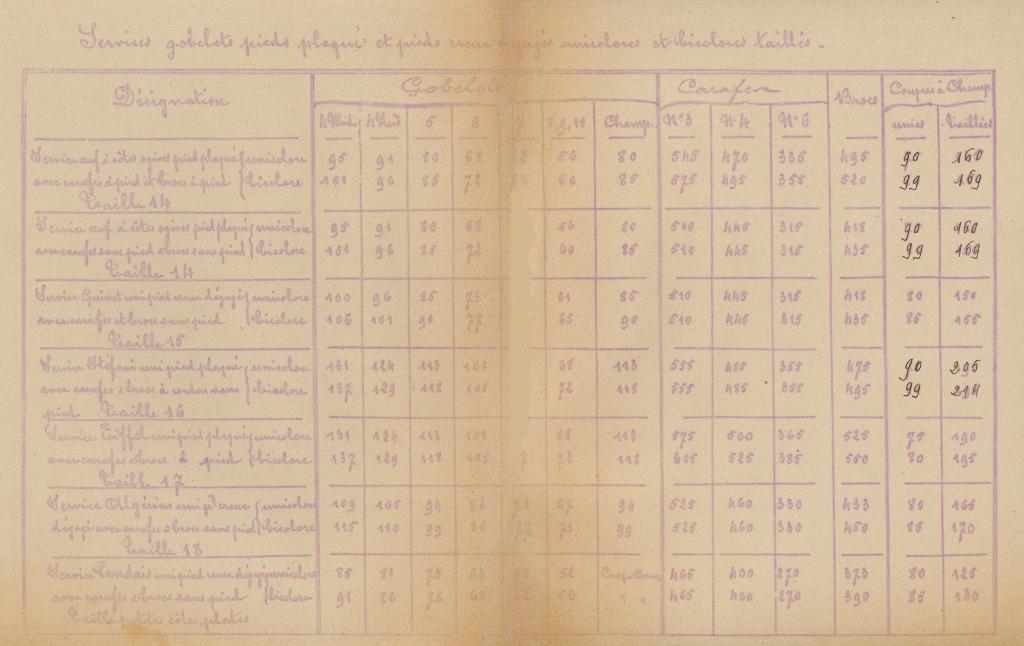 Services gobelets pieds plaqué et pieds creux dégagés unicolores et bicolores taillés.
Désignation Gobelets Carafes Brocs Coupes à Champ.
5 6 8,9,10 Champ. N°3 N°4 N°6 unies Taillées
Service œuf à côtes ogives pied plaqué unicolore 95 91 80 68 56 80 545 470 335 495 90 160
avec carafes à pied et brocs à pied bicolore 101 96 85 72 60 85 575 495 355 520 99 169
Taille 14
Service œuf à côtes ogives pied plaqué unicolore 95 91 80 68 56 80 510 445 315 418 90 160
avec carafes sans pied et brocs sans pied bicolore 101 96 85 72 60 85 510 445 315 435 99 169
Taille 14
Service uni pied creux dégagé unicolore 100 96 85 73 61 85 510 445 315 418 80 150
avec carafes et brocs sans pied bicolore 106 101 90 77 65 90 510 445 315 435 85 155
Taille 15
Service Stéfani uni pied plaqué unicolore 131 124 113 101 68 113 555 485 355 475 90 205
avec carafes & brocs à cordon sans bicolore 137 129 118 105 72 118 555 485 355 495 99 214
pied Taille 16
Service Eiffel uni pied plaqué unicolore 131 124 113 101 68 113 575 500 365 525 75 190
avec carafes & brocs à pied bicolore 137 129 118 105 72 118 605 525 385 550 80 195
Taille 17
Service Algérien uni pied creux unicolore 109 105 94 82 73 67 94 525 460 330 433 80 165
dégagé avec carafes & brocs sans pied bicolore 115 110 99 86 77 71 99 525 460 330 450 85 170
Taille 18
Service Landais uni pied creux dégagé unicolore 85 81 73 64 52 465 400 270 373 80 125
avec carafes & brocs sans pied bicolore 91 465 400 270 390 85 130
Taille petite côtes plates